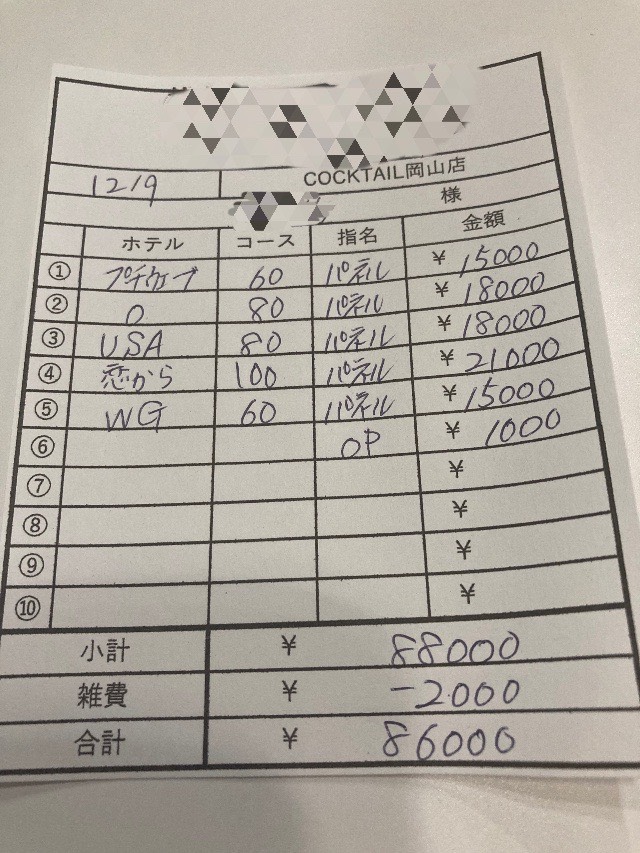 COCKTAIL岡山店
12/9
様
ホテル コース 指名 金額
① プチカブ 60 パネル ¥ 15000
② O 80 パネル ¥ 18000
③ USA 80 パネル ¥ 18000
④ 恋から 100 パネル ¥ 21000
⑤ WG 60 パネル ¥ 15000
⑥ OP ¥ 1000
⑦ ¥
⑧ ¥
⑨ ¥
⑩ ¥
小計 ¥ 88000
雑費 ¥ -2000
合計 ¥ 86000